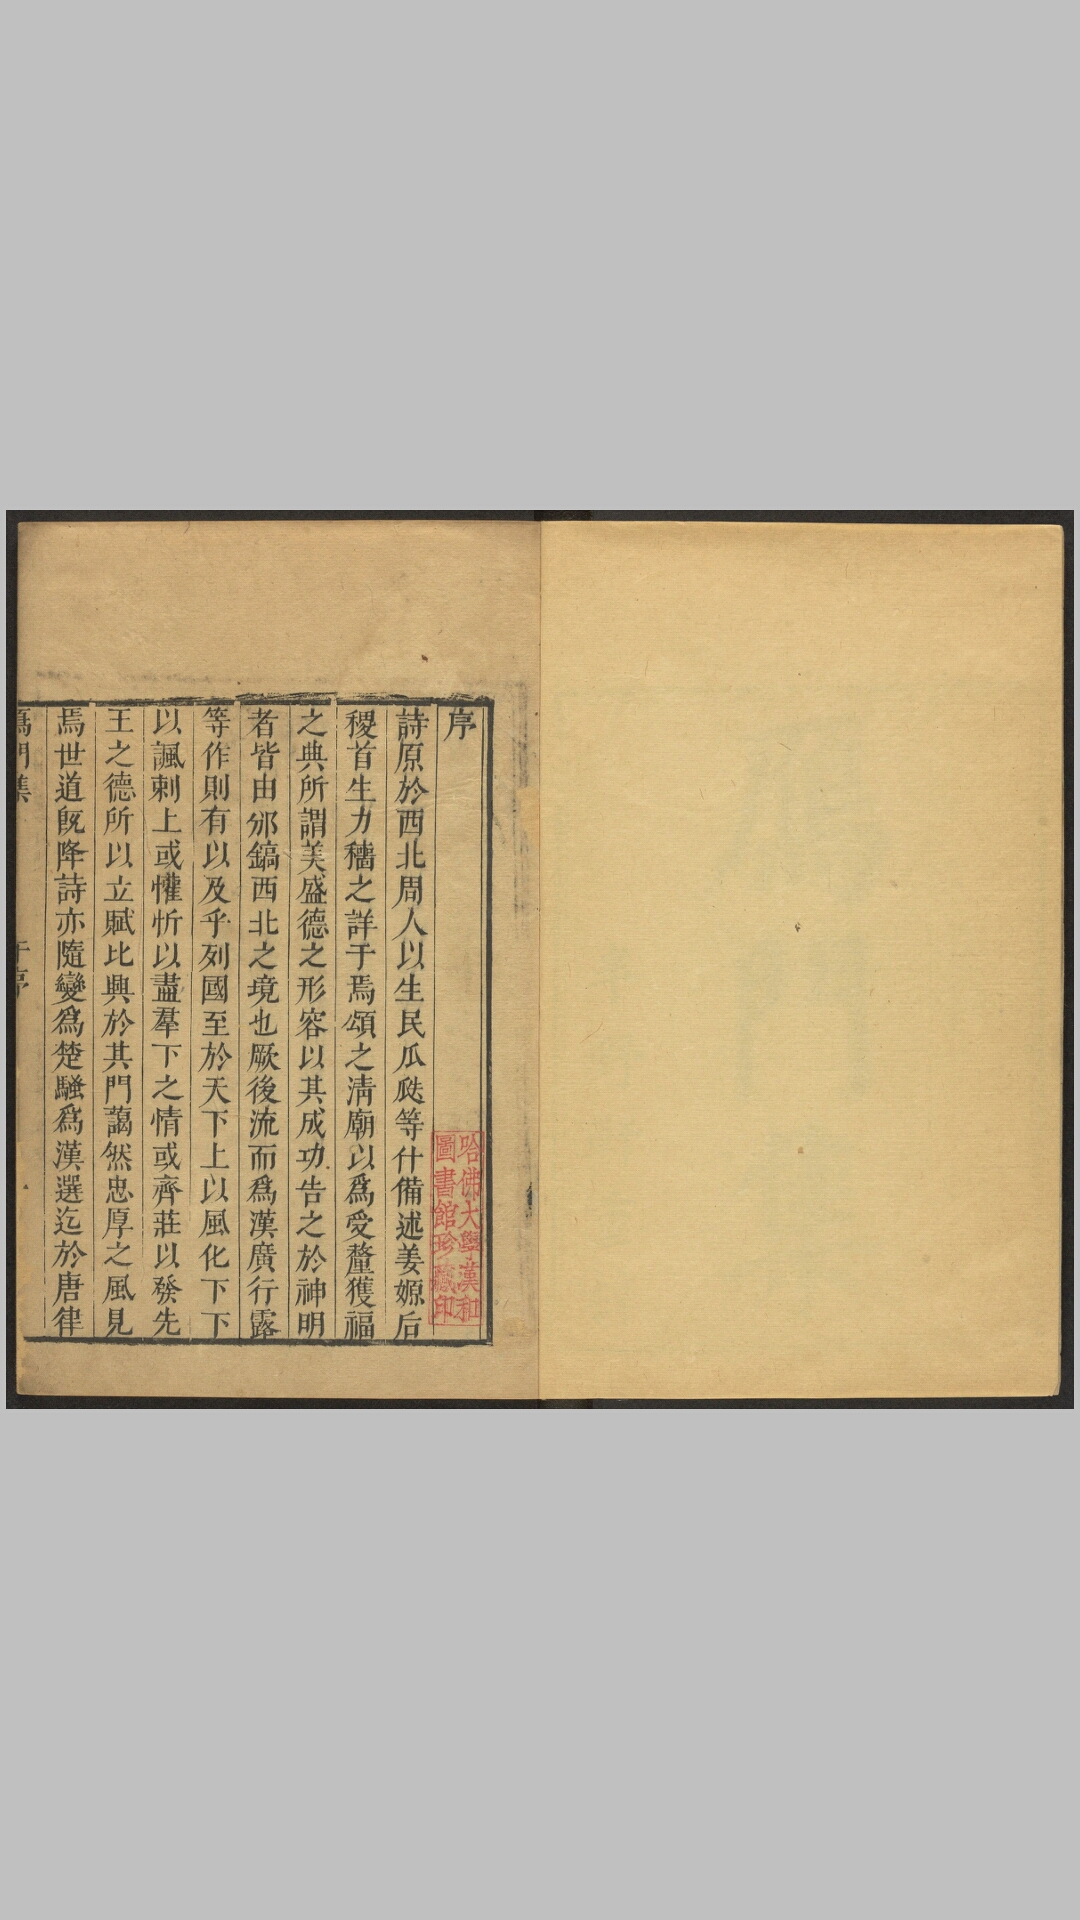 序
詩原於西北周人以生民瓜瓞等什備述姜嫄后
稷首生力穡之詳于焉頌之清廟以爲受釐獲福
之典所謂美盛德之形容以其成功告之於神明
者皆由邠鎬西北之境也厥後流而爲漢廣行露
等作則有以及乎列國至於天下上以風化下下
以諷刺上或懽忻以盡羣下之情或齊莊以發先
王之德所以立賦比興於其門藹然忠厚之風見
焉世道旣降詩亦隨變爲楚騷爲漢選迄於唐律
門集
序
哈佛大學漢和
圖書館珍藏印